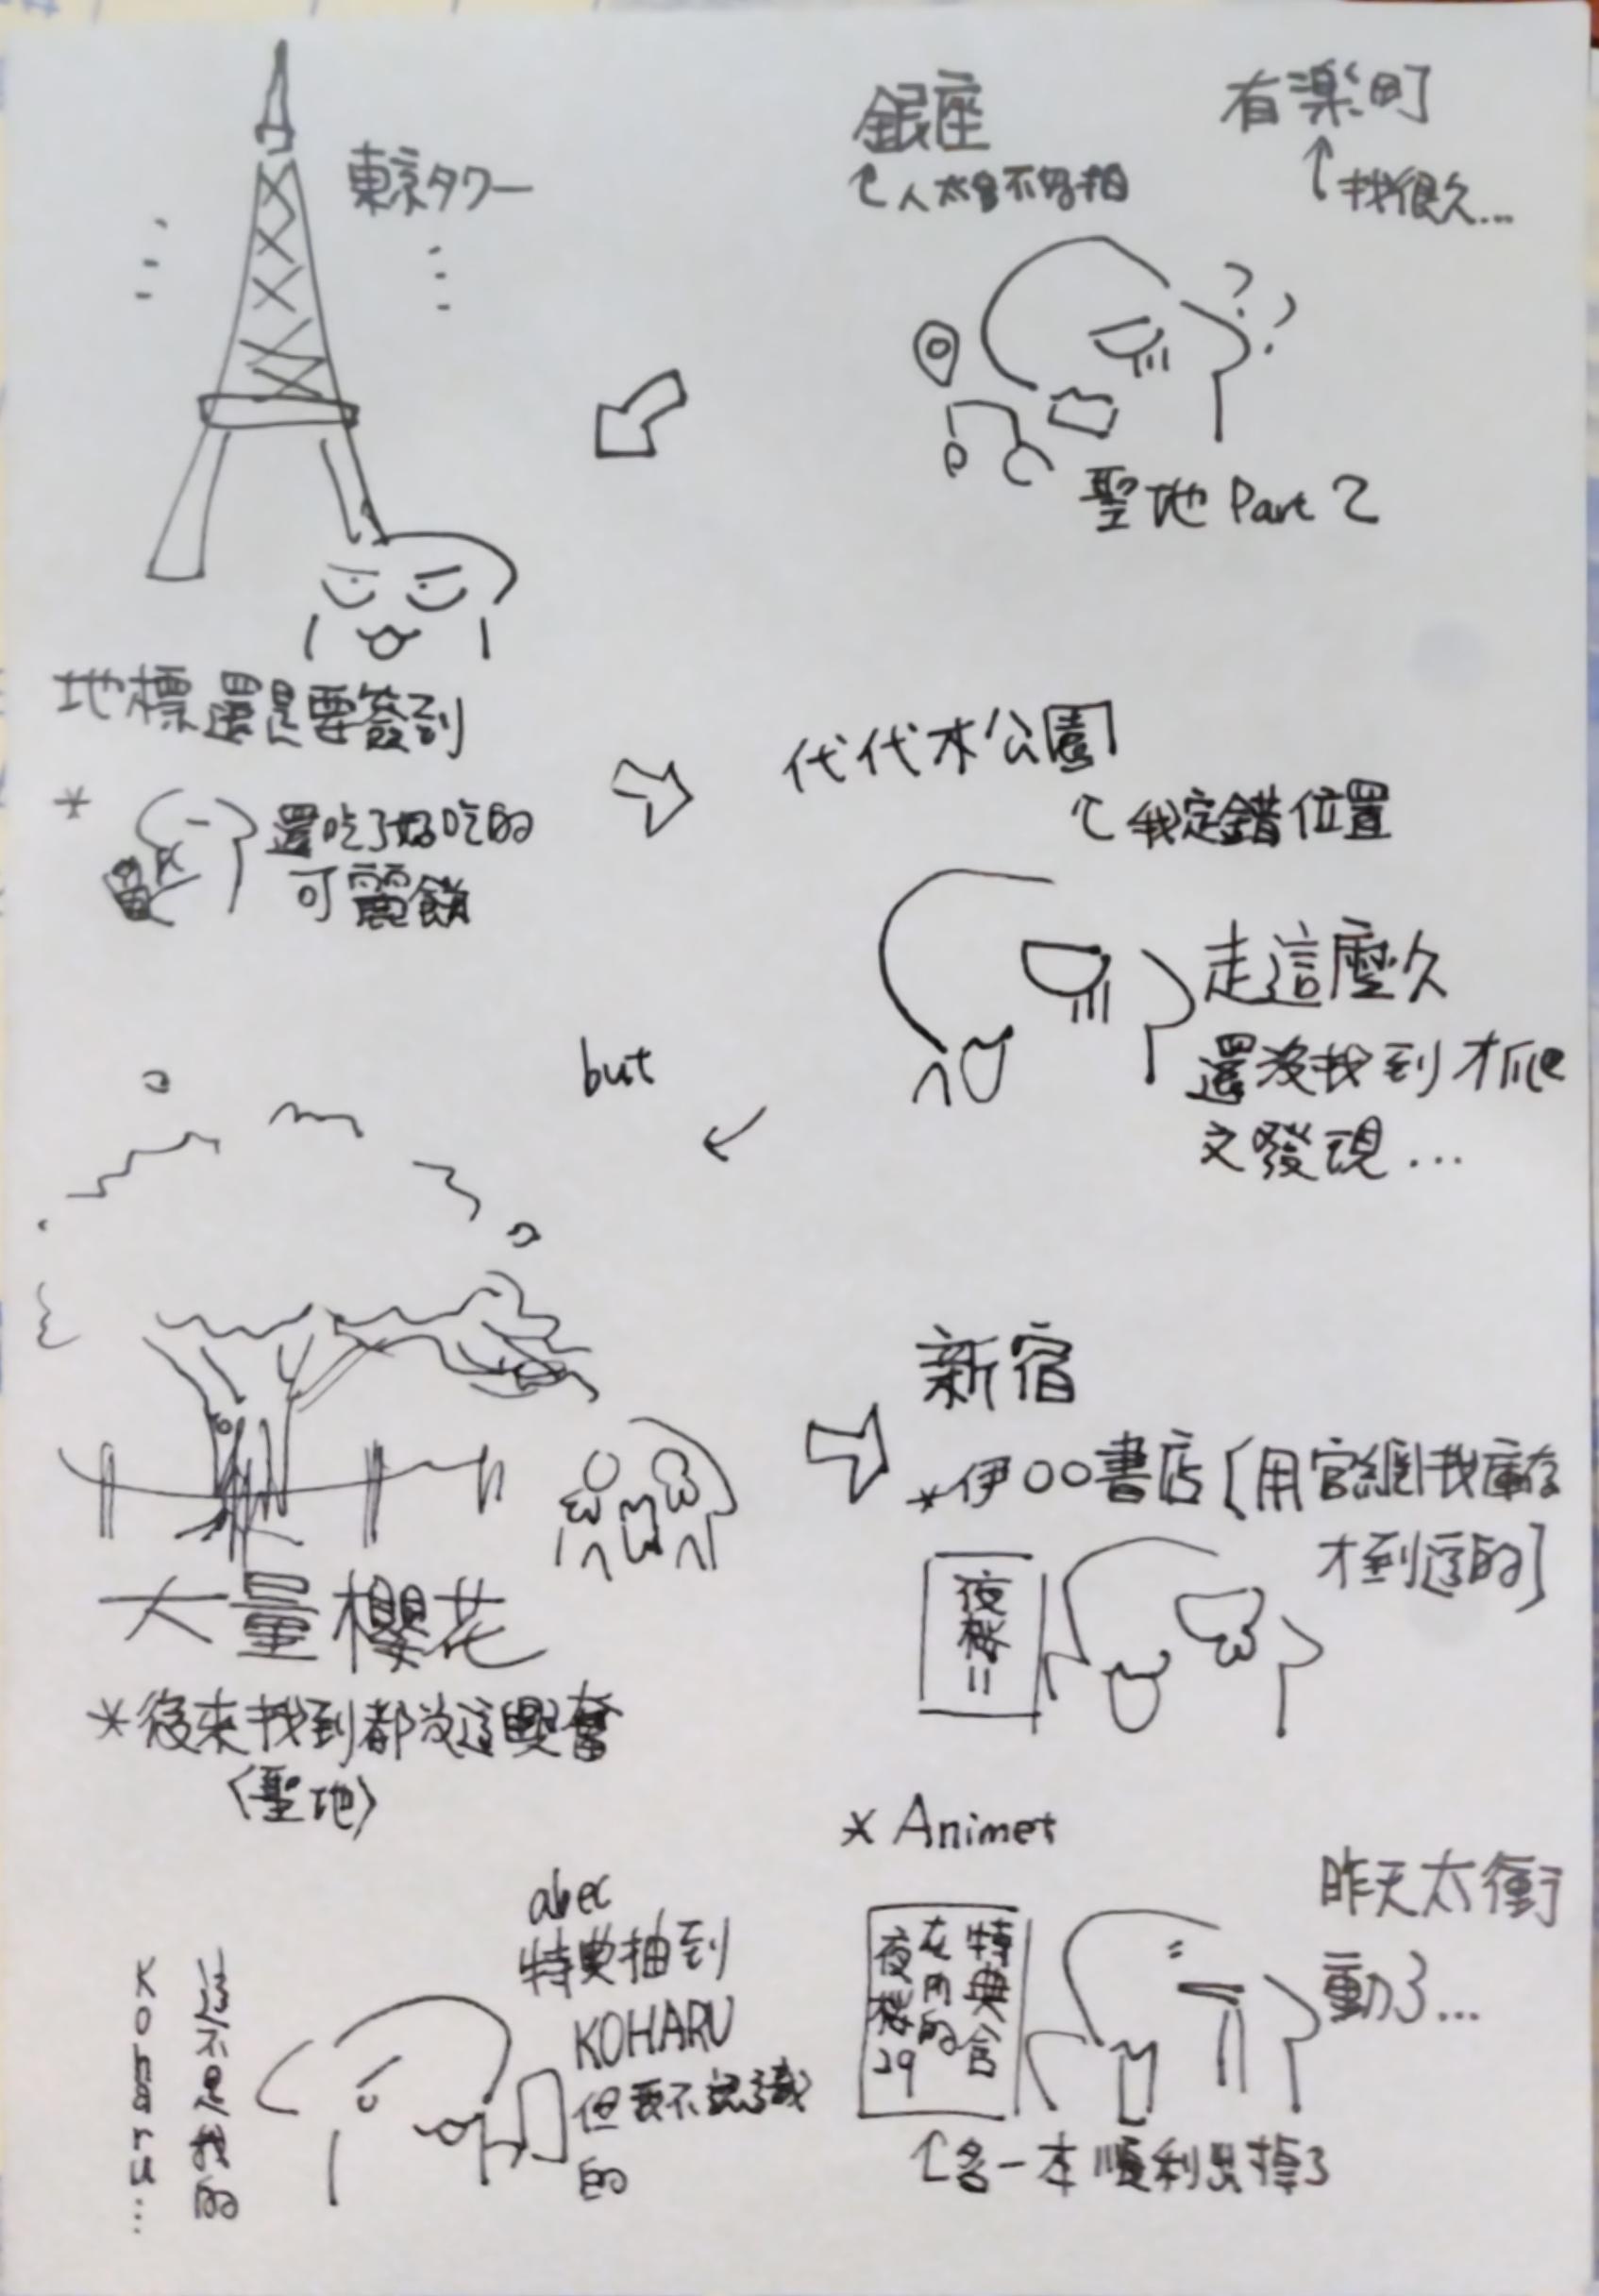 銀座
有楽町
↑人太多不好拍
↑找很久...
??
聖地 Part 2
東京タワー
地標還是要簽到
* 還吃了好吃的
可麗餅
代代木公園
↑我定錯位置
走這麼久
還沒找到才爬
文發現...
but
大量櫻花
*後來找到都沒這興奮
〈聖地〉
新宿
*伊○○書店〔用官網找庫存
才到這的〕
夜櫻!!
* Animet
昨天太衝
動了...
特典含
在內的
夜櫻29
↑多一本順利出掉了
abec
特典抽到
KOHARU
但我不認識
的
這不是我的
Koharu...